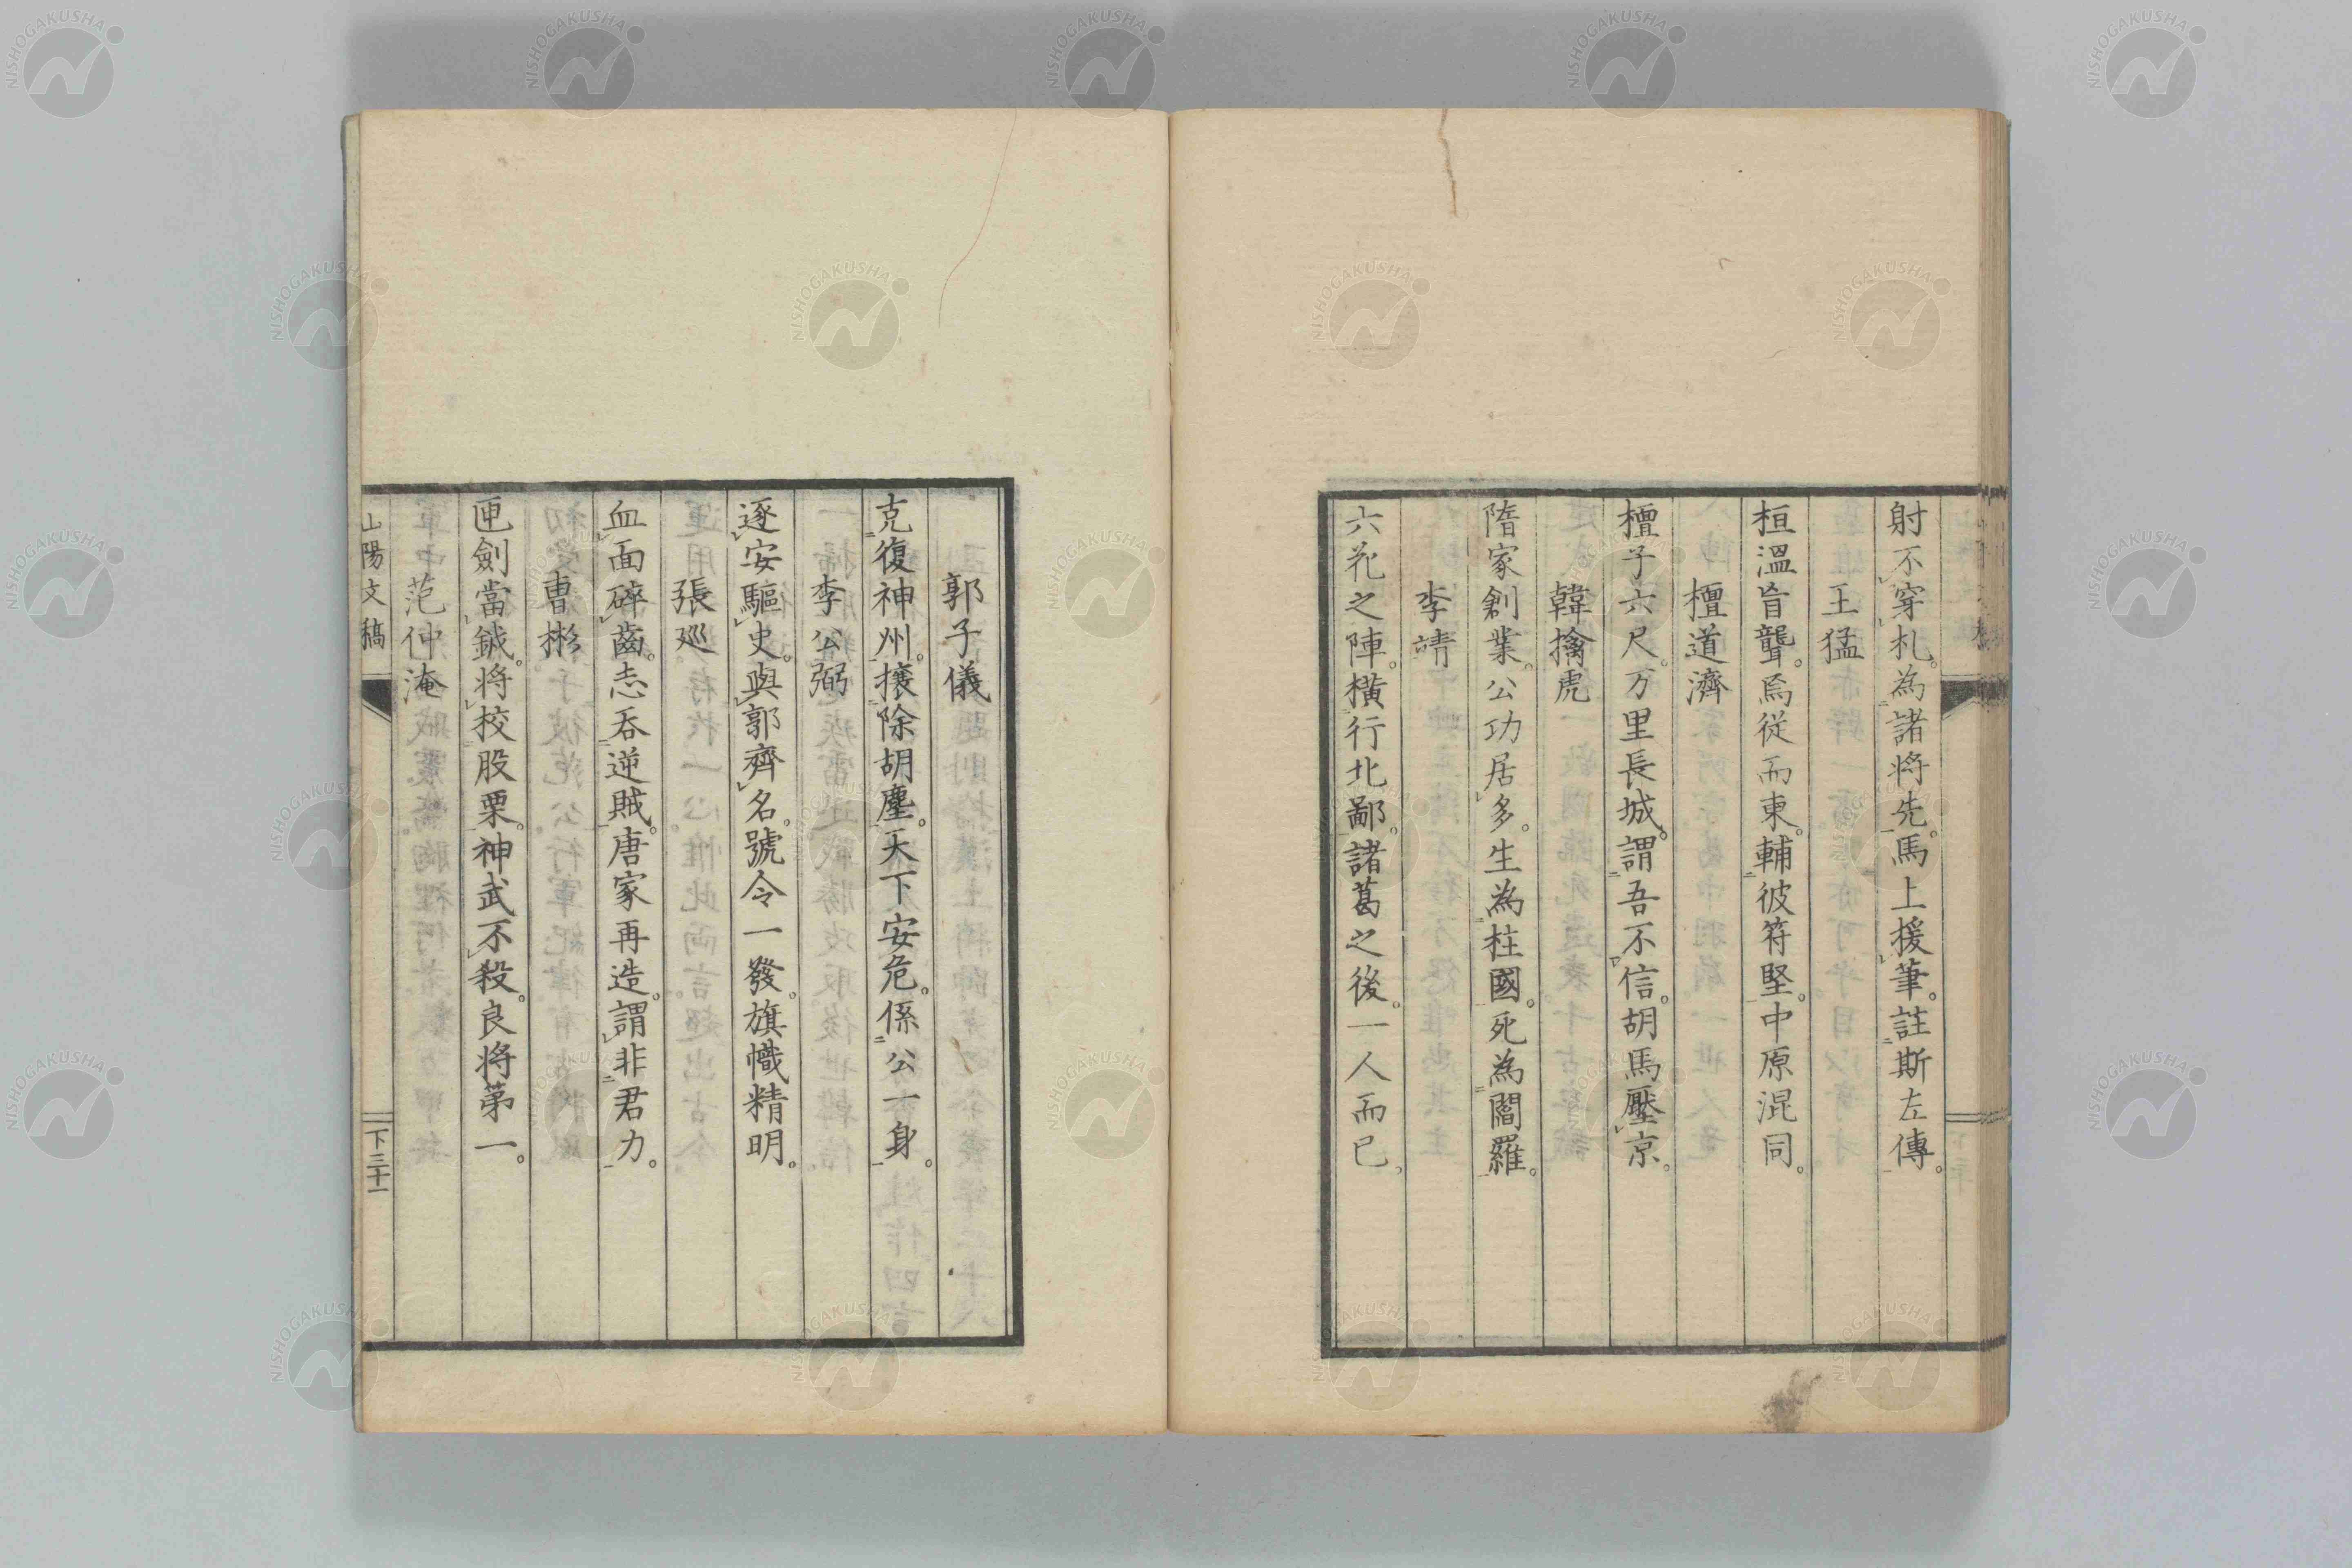 射不穿札。為諸將先。馬上援筆。註斯左傳。
王猛
桓溫盲聾。焉從而東。輔彼符堅。中原混同。
檀道濟
檀子六尺。万里長城。謂吾不信。胡馬壓京。
韓擒虎
隋家創業。公功居多。生為柱國。死為閻羅。
李靖
六花之陣。橫行北鄙。諸葛之後。一人而已。
郭子儀
克復神州。攘除胡塵。天下安危。係公一身。
李公弼
逐安驅史。與郭齊名。號令一發。旗幟精明。
張巡
血面碎齒。志呑逆賊。唐家再造。謂非君力。
曹彬
匣劍當鉞。将校股栗。神武不殺。良将第一。
范仲淹
山陽文稿
下三十一
NISHOGAKUSHA